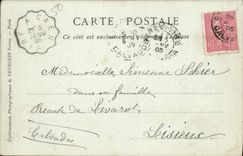 CARTE POSTALE
Ce côté est exclusivement
Mademoiselle Simonne Schier
dans sa famille
Route de Livarot
Lisieux
Calvados
Etablissements Photographiques de NEURDEIN Frères. — Paris
CALVADOS